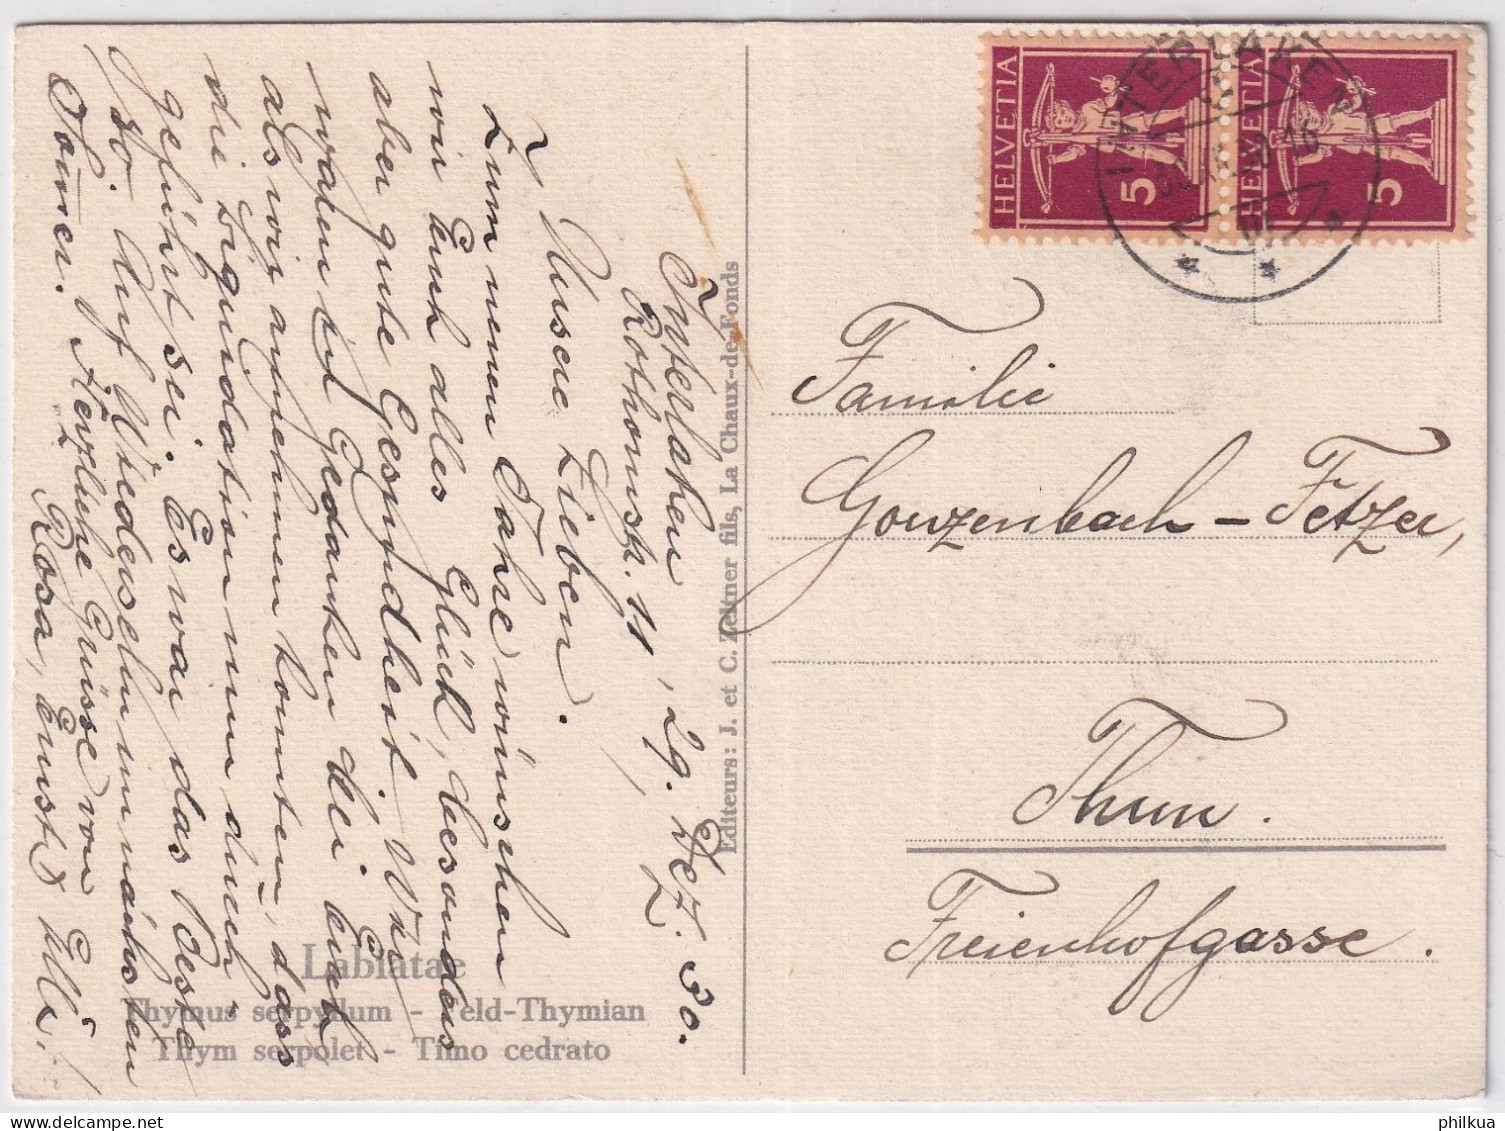 Interlaken, 29. Dez. 30.
Rothornstr. 11
Unsere Lieben.
Zum neuen Jahre wünschen
wir Euch alles Glück, besonders
aber gute Gesundheit. Wir
waren in Gedanken bei Euch
als wir annehmen konnten, dass
die Liquidation nun durch
geführt sei. Es war das Beste
so. Auf Wiedersehn im nächsten
Herzliche Grüsse von
Rosa, Ernst & Elli.
Labiatae
Thymus serpyllum - Feld-Thymian
Thym serpolet - Timo cedrato
Editeurs: J. et C. Zeltner fils, La Chaux-de-Fonds
HELVETIA 5
HELVETIA 5
INTERLAKEN
Familie
Gonzenbach-Fetzer,
Thun.
Freienhofgasse.
philkua